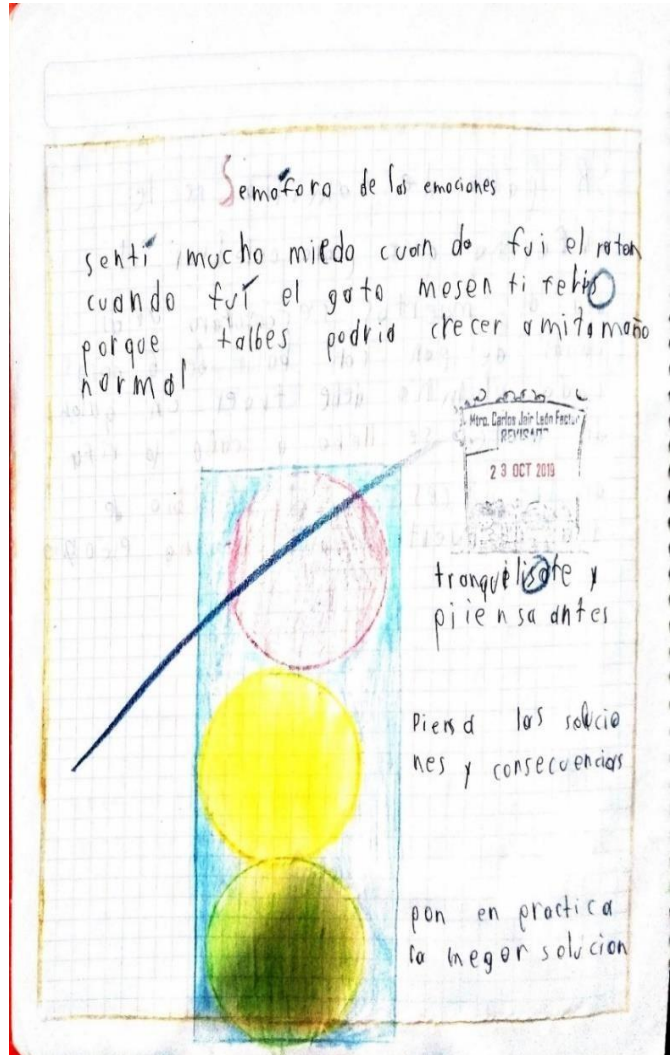 Semáforo de las emociones
sentí mucho miedo cuan do fui el raton
cuando fuí el gato mesen ti feliz
porque talbes podria crecer amita maño
normal
Mtro. Carlos Jair León Factor
REVISADO
23 OCT 2019
tranquilisate y
piiensa antes
Piensa las solucio
nes y consecuencias
pon en practica
la megor solucion